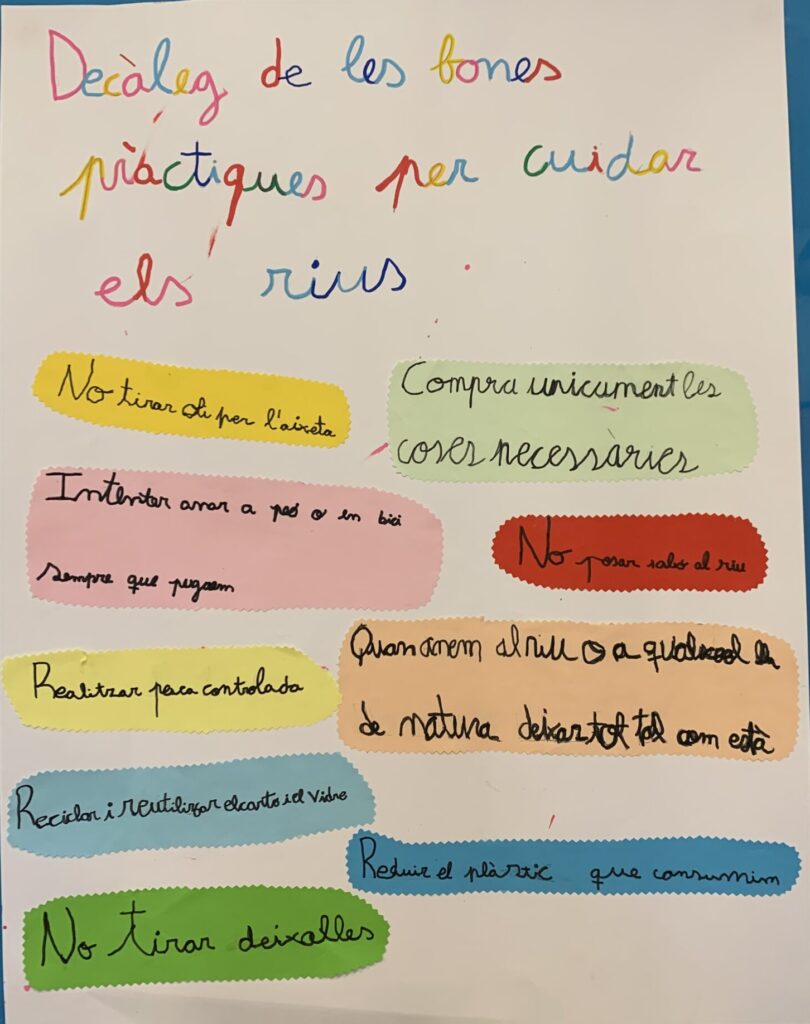 Decàleg de les bones
pràctiques per cuidar
els rius
No tirar oli per l'aixeta
Compra unicament les
coses necessàries
Intentar anar a peó o en bici
sempre que puguem
No posar sabó al riu
Realitzar pesca controlada
Quan anem al riu o a qualsevol
de natura deixar tot tal com està
Reciclar i reutilitzar el carto i el vidre
Reduir el plàstic que consumim
No tirar deixalles